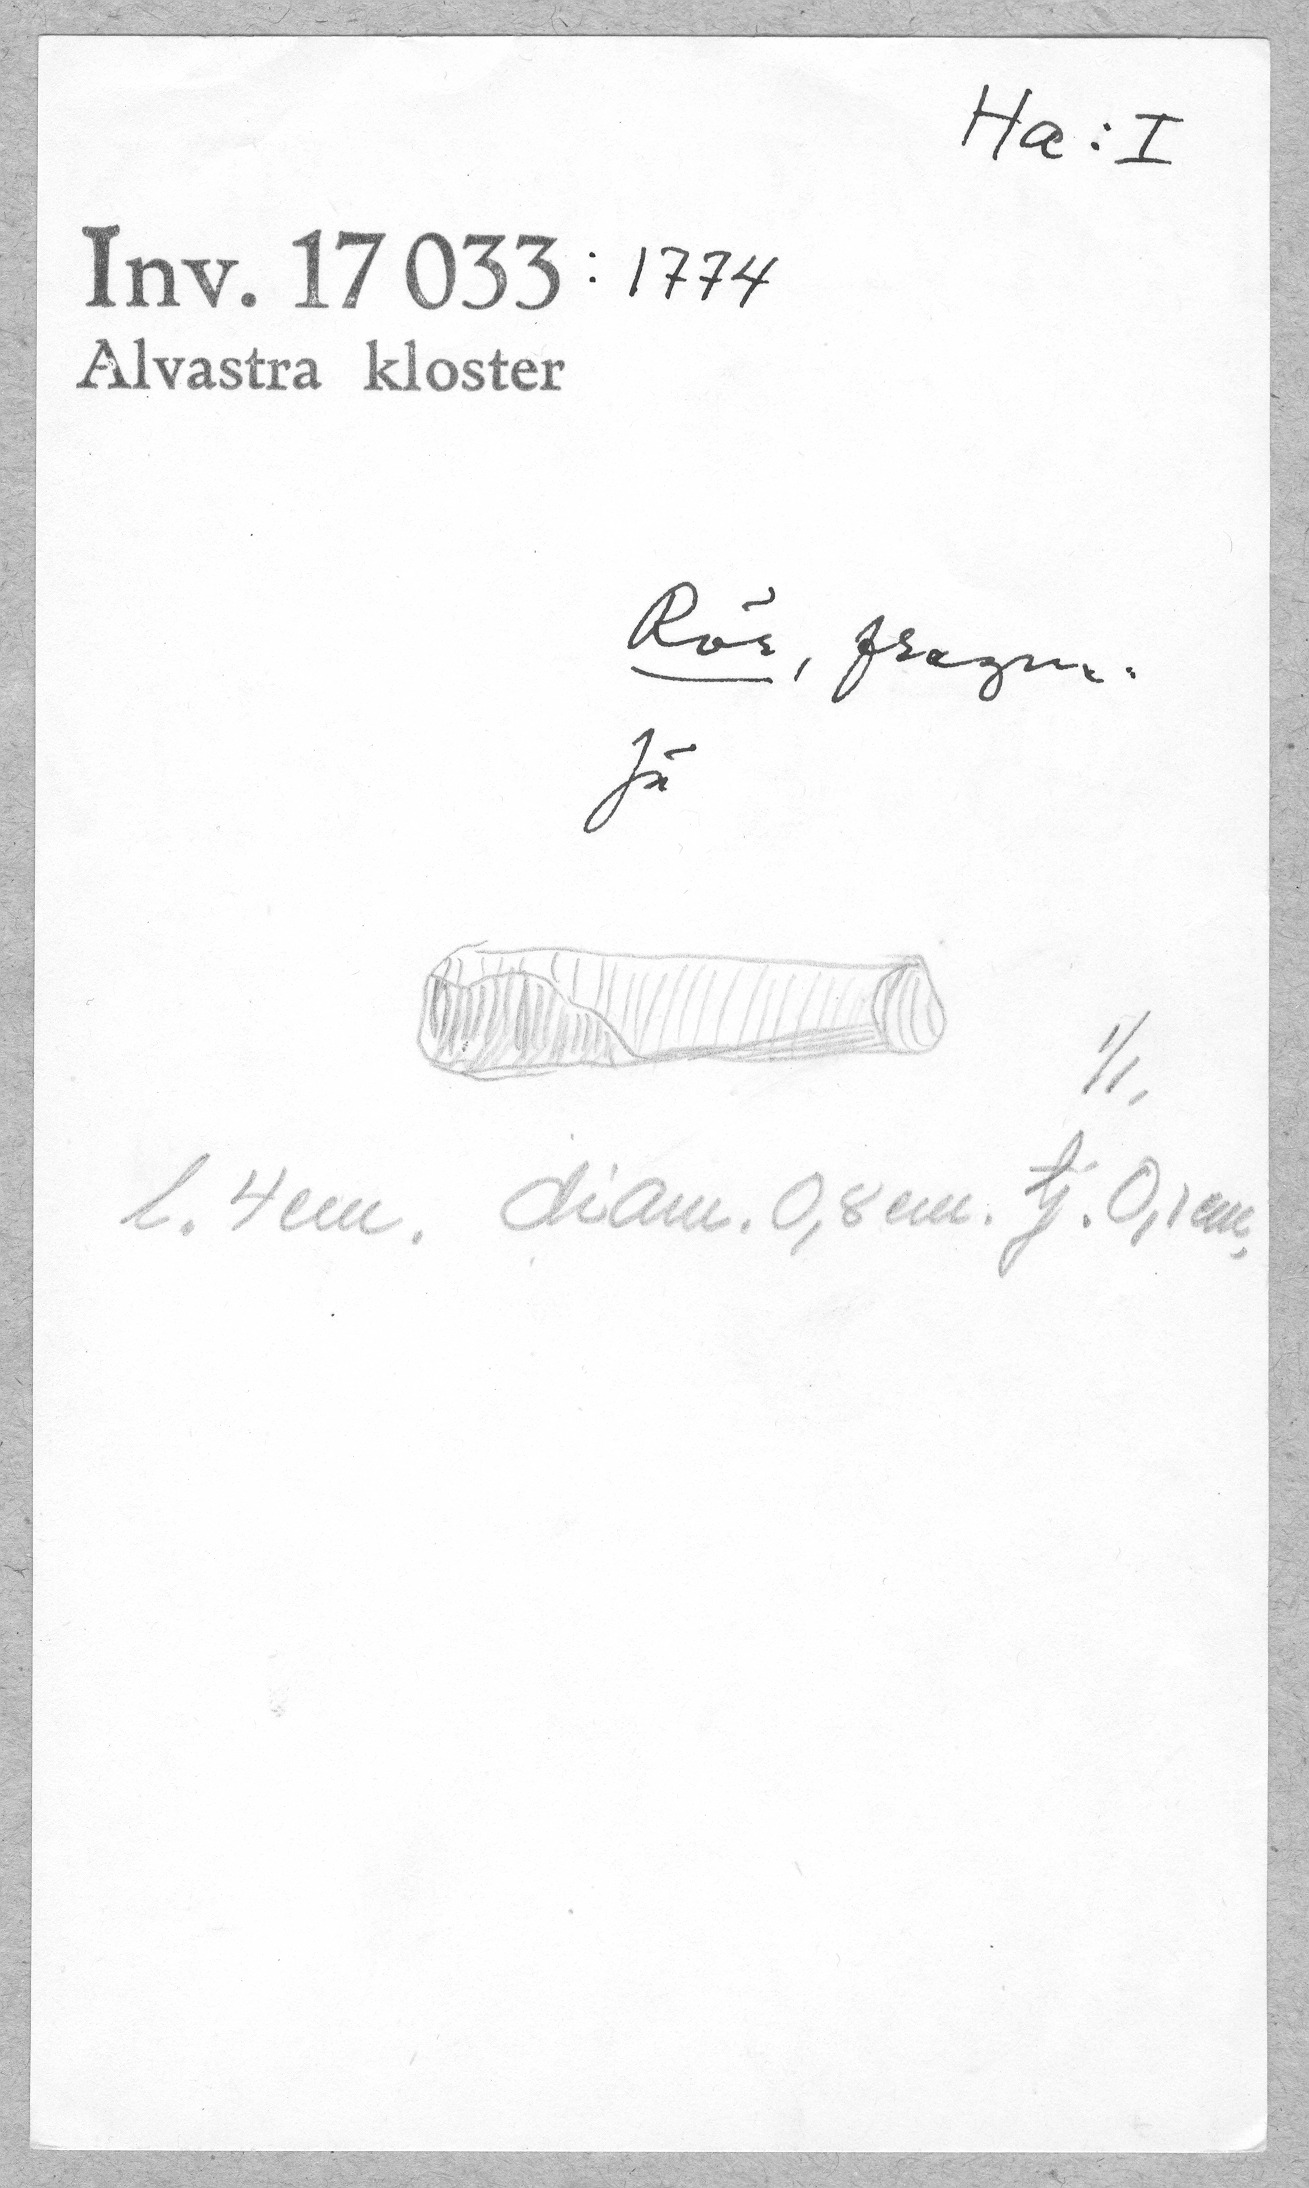 Ha:I
Inv. 17 033 : 1774
Alvastra kloster
Rör, fragm.
Jä
1/1.
l. 4 cm. diam. 0,8 cm. tj. 0,1 cm.